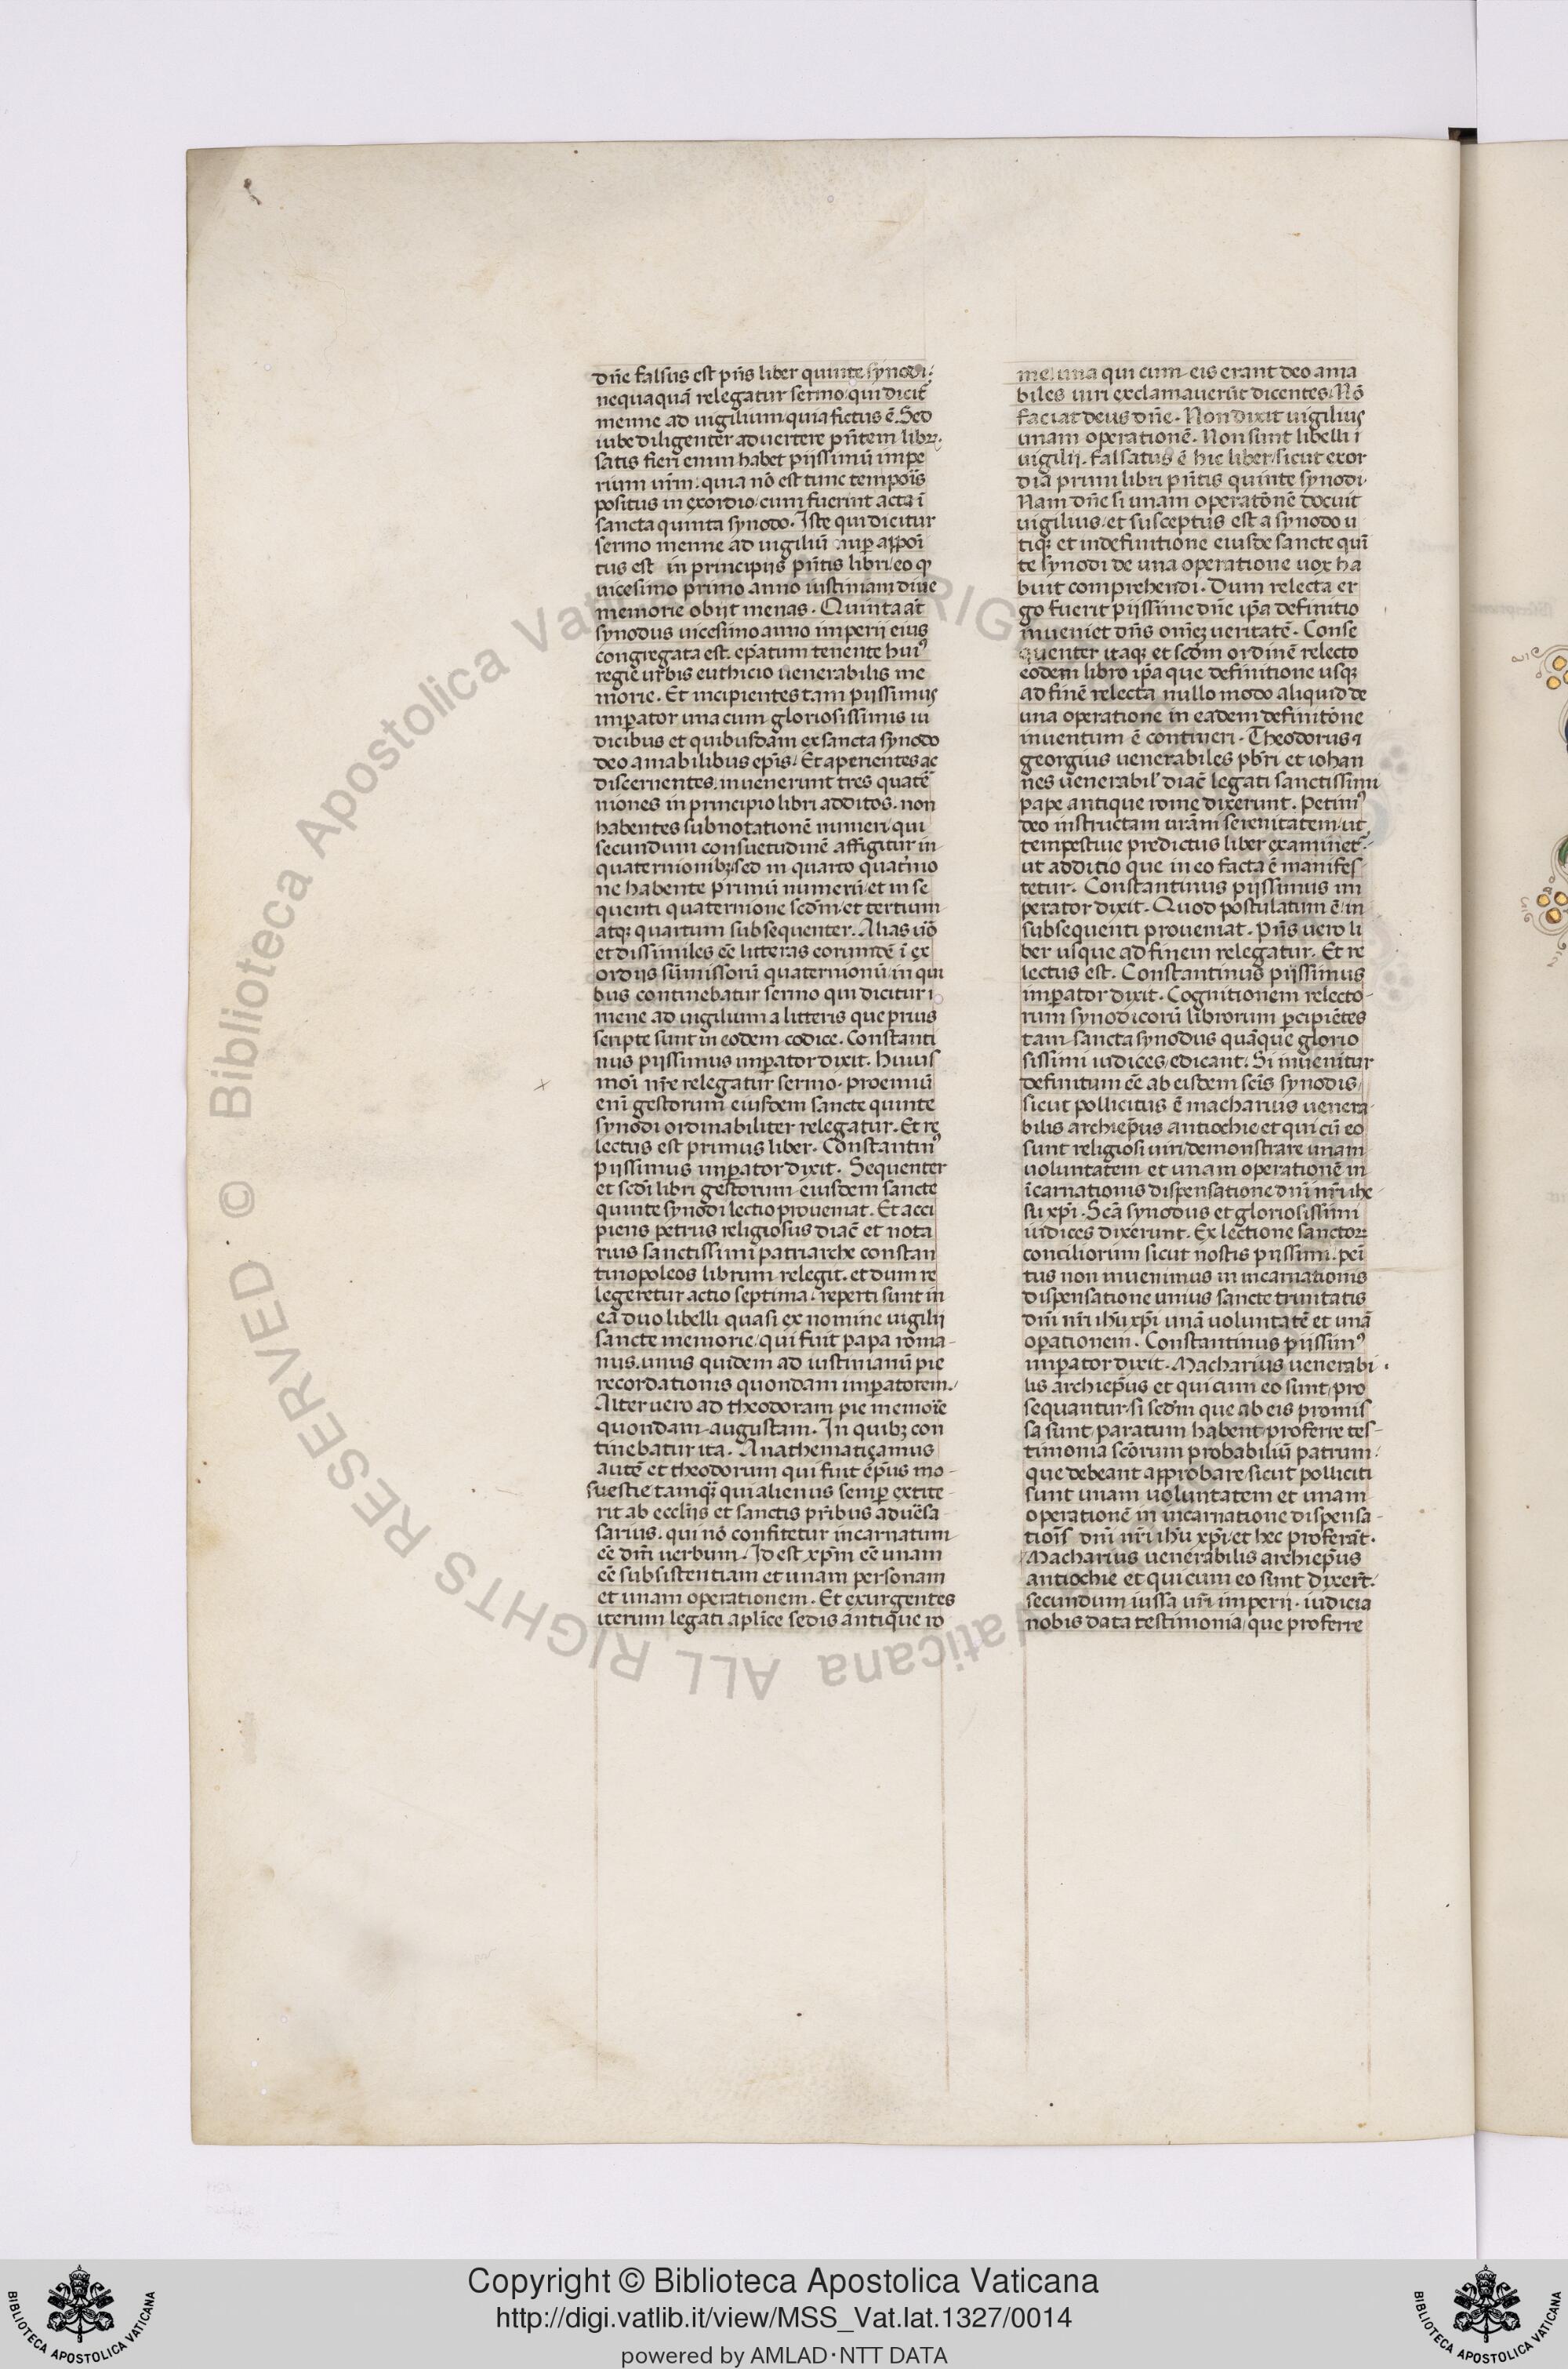 dn̄e falsus est pn̄s liber quinte synodi.
nequaquā relegatur sermo qui dicit᷑
menne ad uigilium quia fictus ē. Sed
iube diligenter aduertere pn̄tem libꝝ.
satis fieri enim habet pijssimū impe
rium ur̄m. quia nō est tunc tempoīs
positus in exordio cum fuerint acta ī
sancta quinta synodo. Iste qui dicitur
sermo menne ad uigiliū nup̄ appoī
tus est in principijs pn̄tis libri eo ꝙ
uicesimo primo anno iustiniani diue
memorie obijt menas. Quinta at̄
synodus uicesimo anno imperij eius
congregata est. ep̄atum tenente huiꝰ
regie urbis euthicio uenerabilis me
morie. Et incipientes tam pijssimus
imp̄ator una cum gloriosissimis iu
dicibus et quibusdam ex sancta synodo
deo amabilibus ep̄is. Et aperientes ac
discernentes. inuenerunt tres quat̄e
niones in principio libri additos. non
habentes subnotationē numeri qui
secundum consuetudinē affigitur in
quaternionibꝫ sed in quarto quat̄nio
ne habente primū numerū et in se
quenti quaternione scd̄m et tertium
atqꝫ quartum subsequenter. Alias uō
et dissimiles eē litteras eorumdē ī ex
ordijs sūmissorū quaternionū in qui
bus continebatur sermo qui dicitur
mene ad uigilium a litteris que prius
scripte sunt in eodem codice. Constanti
nus pijssimus imp̄ator dixit. huius
moī nr̄e relegatur sermo. proemiū
enī gestorum eiusdem sancte quinte
synodi ordinabiliter relegatur. Et re
lectus est primus liber. Constantinꝰ
pijssimus imp̄ator dixit. Sequenter
et scd̄i libri gestorum eiusdem sancte
quinte synodi lectio proueniat. Et acci
piens petrus religiosus diac̄ et nota
rius sanctissimi patriarche constan
tinopoleos librum relegit. et dum re
legeretur actio septima. reperti sunt in
eā duo libelli quasi ex nomine uigilij
sancte memorie qui fuit papa roma-
nus. unus quidem ad iustinianū pie
recordationis quondam imp̄atorem.
Alter uero ad theodoram pie memoīe
quondam augustam. In quibꝫ con
tinebatur ita. Anathematiçamus
autē et theodorum qui fuit ep̄us mo-
suestie tamqꝫ qui alienus semp̄ extite-
rit ab eccl̄ijs et sanctis pr̄ibus adu̇ēsa
sarius. qui nō confitetur incarnatum
eē dm̄ uerbum. Id est xp̄m eē unam
eē subsistentiam et unam personam
et unam operationem. Et exurgentes
iterum legati apl̄ice sedis antique ro
me una qui cum eis erant deo ama
biles uiri exclamauerūt dicentes. Nō
faciat deus dn̄e. Non dixit uigilius
unam operationē. Non sunt libelli
uigilij. falsatus ē hic liber sicut exor
dia primi libri pn̄tis quinte synodi.
Nam dn̄e si unam operatōnē docuit
uigilius. et susceptus est a synodo u
tiqꝫ et in definitione eiusdē sancte quī
te synodi de una operatione uox ha
buit comprehendi. Dum relecta er
go fuerit pijssime dn̄e ip̄a definitio
inueniet dn̄s om̄eꝫ ueritatē. Conse
quenter itaqꝫ et scd̄m ordinē relecto
eodem libro ip̄a que definitione usqꝫ
ad finē relecta nullo modo aliquid de
una operatione in eadem definitōne
inuentum ē contineri. Theodorus ⁊
georgius uenerabiles pb̄ri et iohan
nes uenerabil̕ diac̄ legati sanctissimi
pape antique rome dixerunt. Petimꝰ
deo instructam ur̄am serenitatem ut
tempestiue predictus liber examinet᷑.
ut additio que in eo facta ē manifes
tetur. Constantinus pijssimus im
perator dixit. Quod postulatum ē in
subsequenti proueniat. Pn̄s uero li
ber usque ad finem relegatur. Et re
lectus est. Constantinus pijssimus
imp̄ator dixit. Cognitionem relecto-
rum synodicorū librorum p̄cipiētes
tam sancta synodus quāque glorio
sissimi iudices edicant. Si inuenitur
definitum eē ab eisdem scīs synodis
sicut pollicitus ē macharius uenera
bilis archiep̄us antiochie et qui cū eo
sunt religiosi uiri demonstrare unam
uoluntatem et unam operationē in
īcarnationis dispensatione dnī nr̄i ihe
su xp̄i. Scā synodus et gloriosissimi
iudices dixerunt. Ex lectione sanctoꝝ
conciliorum sicut nostis pijssimi. peī
tus non inuenimus in incarnationis
dispensatione unius sancte trinitatis
dnī nr̄i ihū xp̄i unā uoluntatē et unā
op̄ationem. Constantinus pijssimꝰ
imp̄ator dixit. Macharius uenerabi
lis archiep̄us et qui cum eo sunt pro
sequantur si scd̄m que ab eis promis
sa sunt paratum habent proferre tes-
timonia scōrum probabiliū patrum
que debeant approbare sicut polliciti
sunt unam uoluntatem et unam
operationē in incarnatione dispensa-
tioīs dnī nr̄i ihū xp̄i et hec proferāt.
Macharius uenerabilis archiep̄us
antiochie et qui cum eo sunt dixer̄t.
secundum iussa ur̄i imperij. iudicia
nobis data testimonia que proferre
© Biblioteca Apostolica Vaticana ALL RIGHTS RESERVED
Copyright © Biblioteca Apostolica Vaticana
http://digi.vatlib.it/view/MSS_Vat.lat.1327/0014
powered by AMLAD·NTT DATA
BIBLIOTECA APOSTOLICA VATICANA
BIBLIOTECA APOSTOLICA VATICANA